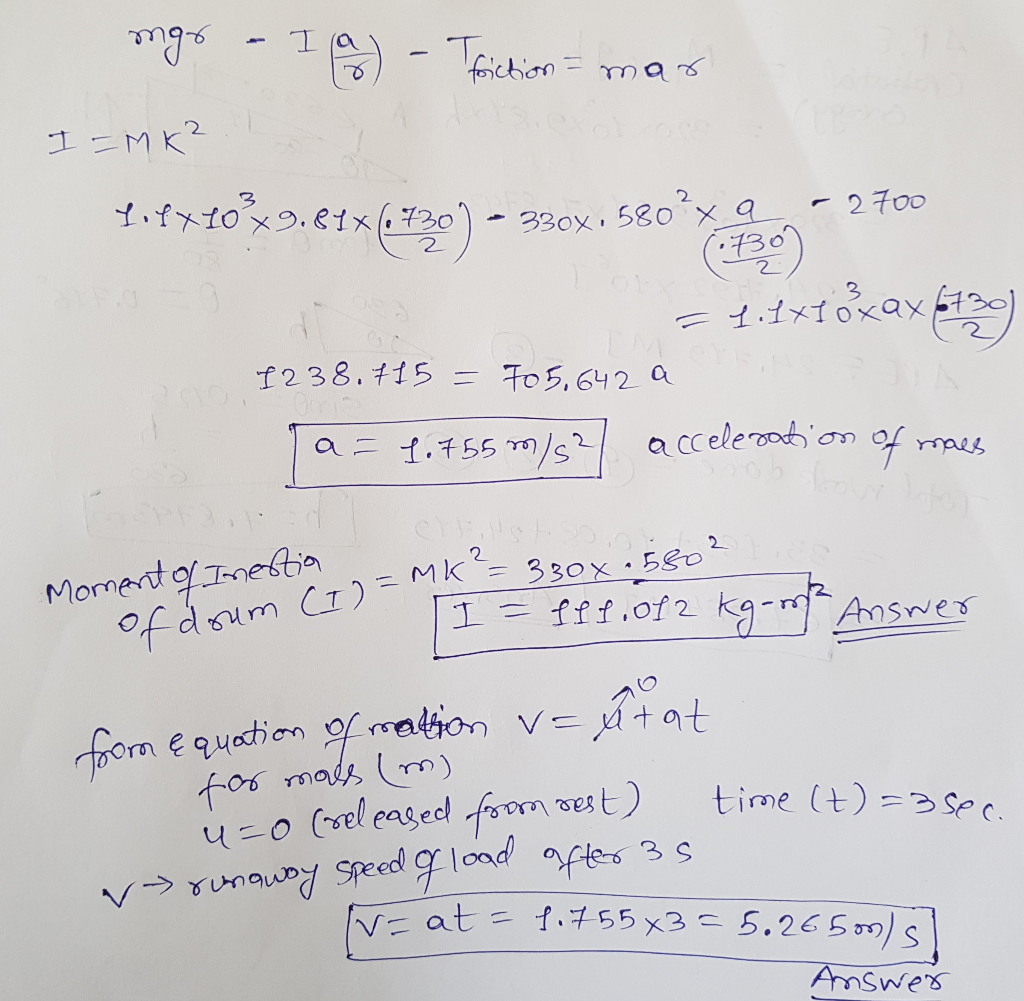 mgr - I(a/r) - Tfriction = mar
I = MK²
1.1×10³×9.81×(.730/2) - 330×.580²× a/(.730/2) - 2700
= 1.1×10³×a×(.730/2)
1238.715 = 705.642 a
a = 1.755 m/s² acceleration of mass
Moment of Inertia
of drum (I) = MK² = 330×.580²
I = 111.012 kg-m² Answer
from equation of motion v = u↗0 + at
for mass (m)
u=0 (released from rest) time (t) = 3 sec.
v → runaway speed of load after 3 s
v = at = 1.755×3 = 5.265 m/s
Answer